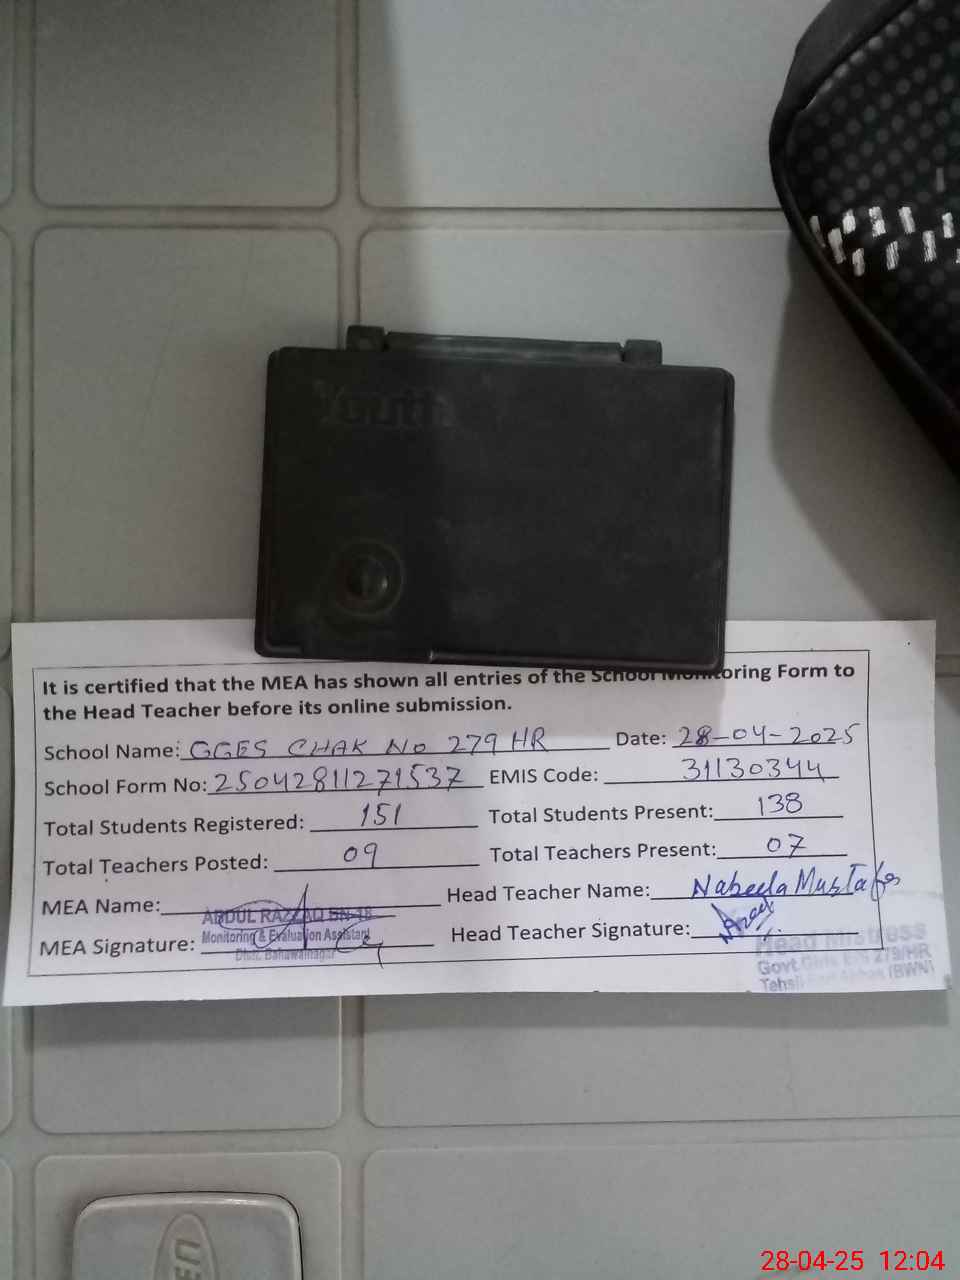 Youth
It is certified that the MEA has shown all entries of the School Monitoring Form to
the Head Teacher before its online submission.
School Name: GGES CHAK No 279 HR Date: 28-04-2025
School Form No: 25042811271537 EMIS Code: 31130344
Total Students Registered: 151 Total Students Present: 138
Total Teachers Posted: 09 Total Teachers Present: 07
MEA Name: Head Teacher Name: Nabeela Mustafa
ABDUL RAZZAQ BN-18
MEA Signature: Monitoring & Evaluation Assistant Head Teacher Signature:
Distt. Bahawalnagar
Head Mistress
Govt. Girls E/S 279/HR
Tehsil Fort Abbas (BWN)
28-04-25 12:04